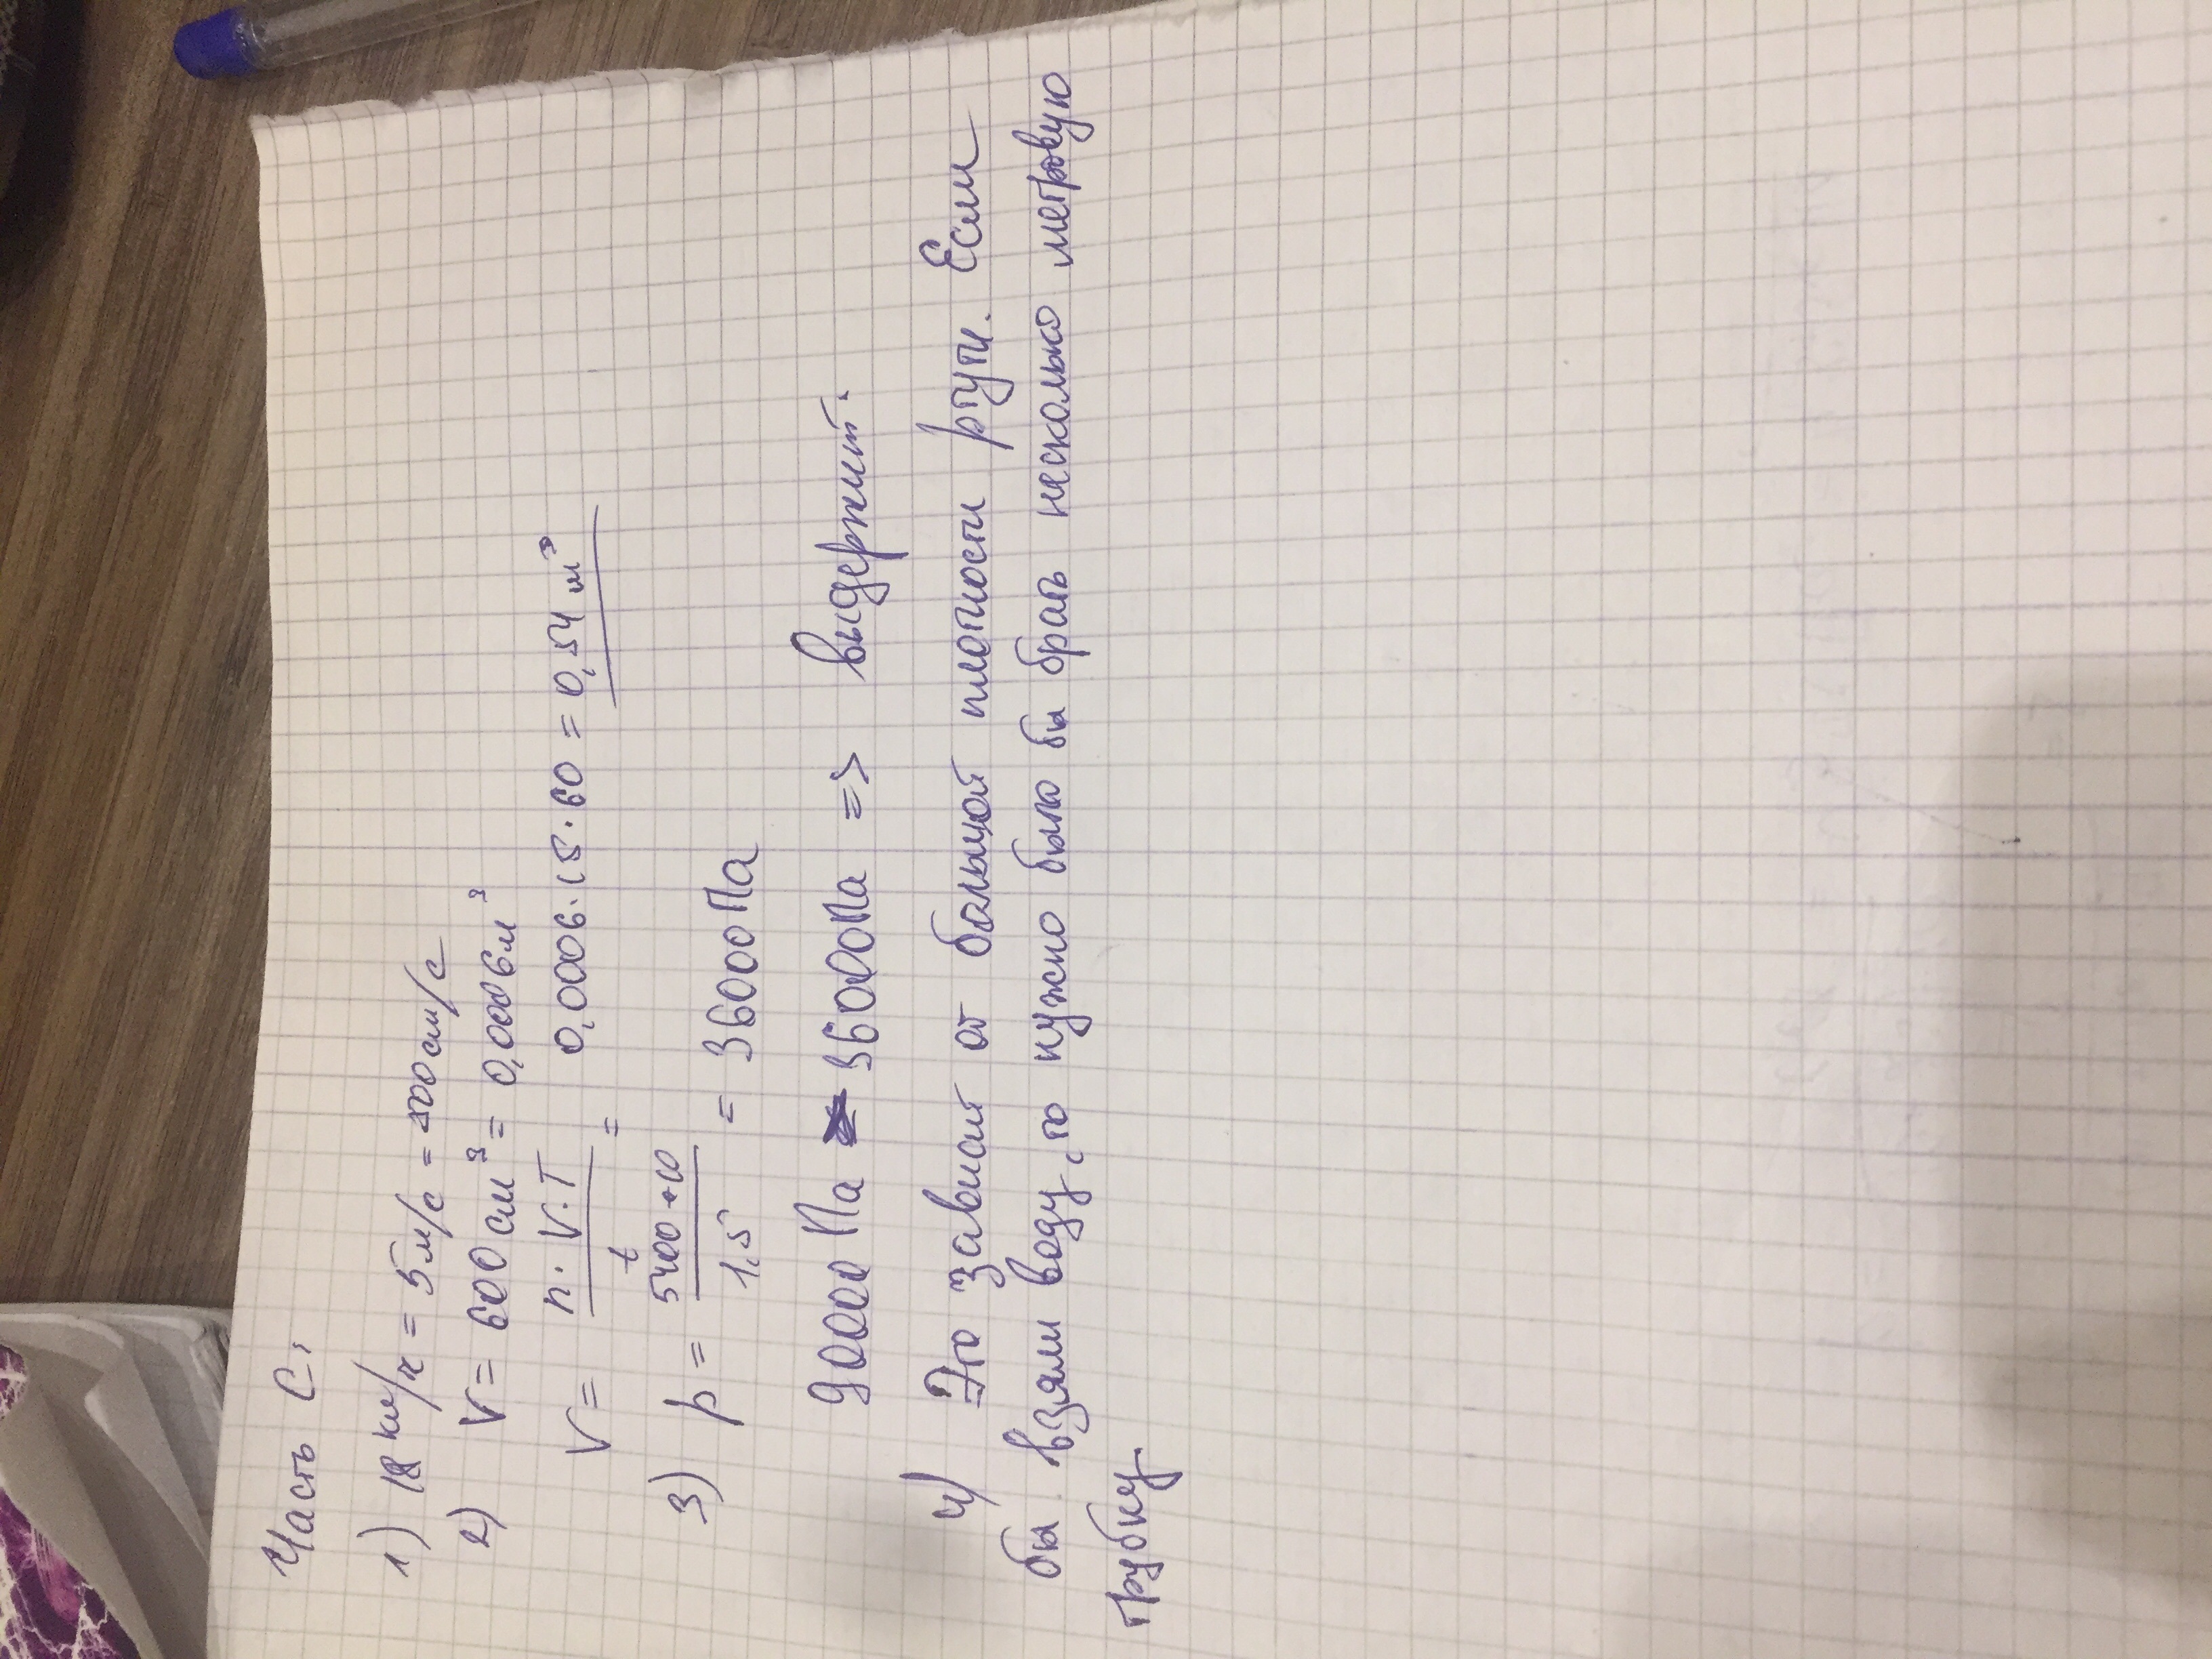 Часть С,
1) 18 км/ч = 5 м/с = 500 см/с
2) V = 600 см³ = 0,0006 м³
V = n · V · T / t = 0,0006 · 15 · 60 = 0,54 м³
3) p = / 1,5 = 36000 Па
90000 Па 36000 Па => выдержит.
4) Это зависит от большой плотности ртути. Если
бы взяли воду, то нужно было бы брать несколько метровую
трубку